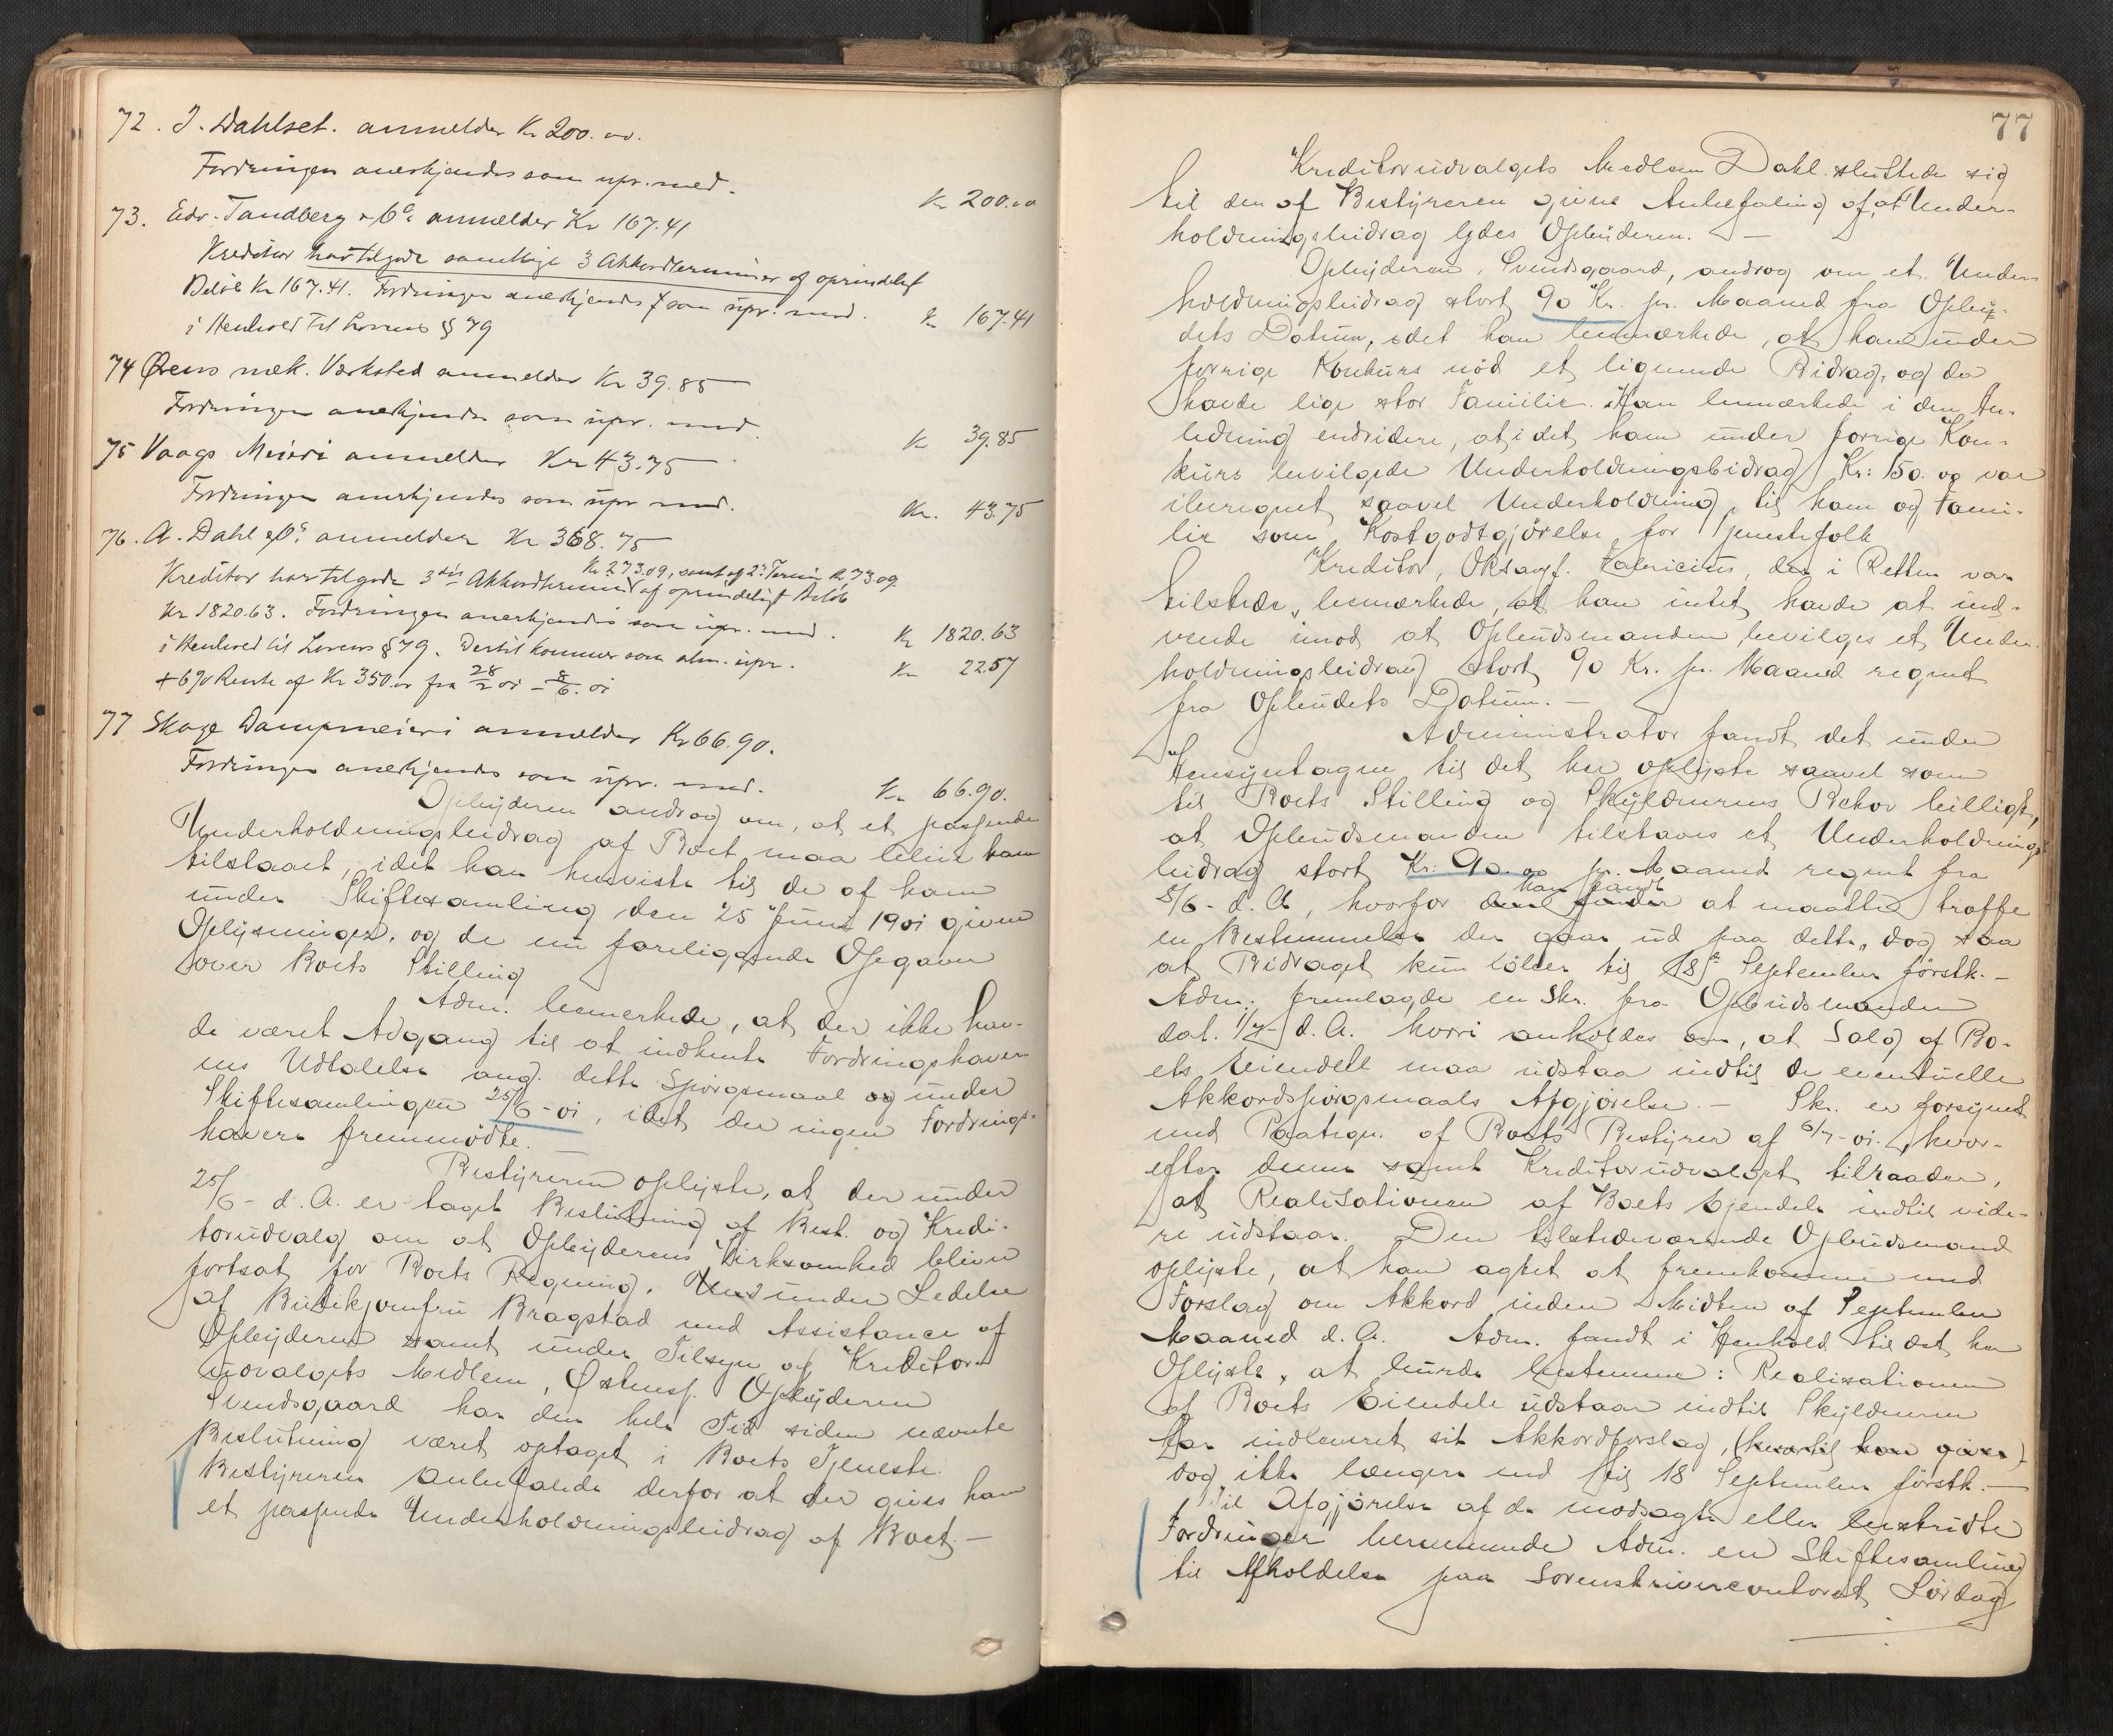 72. J. Dahlset. anmelder Kr 200.00.
Fordringen anerkjendes som upr. med.
Kr 200.00
73. Edv. Tandberg & Co. anmelder Kr 167.41
Kreditor har tilgode samtlige 3 Akkordterminer af oprindeligt
Beløb Kr 167.41. Fordringen anerkjendes som upr. med.
Kr 167.41
i Henhold til Lovens § 79
74 Ørens mek. Værksted anmelder Kr 39.85
Fordringen anerkjendes som upr. med.
Kr 39.85
75 Vaags Meieri anmelder Kr 43.75
Fordringen anerkjendes som upr med.
Kr. 43.75
76. A. Dahl & Co. anmelder Kr 368.75
Kr 273.09, samt af 2den Termin Kr 73.09
Kreditor har tilgode 3die Akkordtermin af oprindeligt Beløb
Kr 1820.63. Fordringen anerkjendes som upr. med.
Kr 1820.63
i Henhold til Lovens § 79. Dertil kommer som alm. upr.
Kr 22.57
+ 6% Rente af Kr 350.00 fra 28/2 01 – 8/6. 01
77 Skage Dampmeieri anmelder Kr 66.90.
Fordringen anerkjendes som upr. med.
Kr 66.90.
Opbyderen androg om, at et passende
Underholdningsbidrag af Boet maa blive ham
tilstaaet, idet han henviste til de af ham
under Skiftesamling den 25 Juni 1901 givne
Oplysninger, og de nu foreliggende Opgaver
over Boets Stilling
Adm. bemerkede, at der ikke hav-
de været Adgang til at indhente Fordringshaver
nes Udtalelse ang. dette Spørgsmaal og under
Skiftesamlingen 25/6-01, idet der ingen Fordrings-
havere fremmødte.
Bestyreren oplyste, at der under
25/6- d.A. er taget Beslutning af Best. og Kredi-
torudvalg om at Opbyderens Virksomhed bliver
fortsat for Boets Regning, under Ledelse
af Butikjomfru Bragstad med Assistance af
Opbyderen samt under Tilsyn af Kreditor-
udvalgets Medlem, Opbyderen
Svendsgaard har den hele Tid siden nævnte
Beslutning været optaget i Boets Tjeneste.
Bestyreren anbefalede derfor at der gives ham
et passende Underholdningsbidrag af Boet.—
77
Kreditorudvalgets Medlem Dahl sluttede sig
til den af Bestyreren givne Anbefaling af, at Under-
holdningsbidrag ydes Opbyderen. —
Opbyderen, Svendsgaard, androg om et Under-
holdningsbidrag stort 90 Kr. pr. Maaned fra Opbu-
dets Datum, idet han bemærkede, at han under
forrige Konkurs nød et lignende Bidrag, og da
havde lige stor Familie. Han bemærkede i den An-
ledning endvidere, at i det ham under forrige Kon-
kurs bevilgede Underholdningsbidrag Kr: 150.00 var
iberegnet saavel Underholdning til ham og Fami-
lie som Kostgodtgjørelse for Tjenestefolk
Kreditor, Oksagf. Fabricius, der i Retten var
tilstede, bemærkede, at han intet havde at ind-
vende imod at Opbudsmanden bevilges et Under-
holdningsbidrag stort 90 Kr. pr. Maaned regnet
fra Opbudets Datum.—
Administrator fandt det under
Hensyntagen til det her oplyste saavel som
til Boets Stilling og Skyldnerens Behov billigt,
at Opbudsmanden tilstaaes et Underholdnings
bidrag stort Kr: 90.00 pr. Maaned regnet fra
8/6- d.A, hvorfor han fandt at maatte træffe
en Bestemmelse der gaar ud paa dette, dog saa
at Bidraget kun løber til 18de September førstk.—
Adm. fremlagde en Skr. fra Opbudsmanden
dat. 1/7- d.A. hvori anholdes om, at Salg af Bo-
ets Eiendele maa udstaa indtil de eventuelle
Akkordspørgsmaals Afgjørelse.— Skr. er forsynet
med Paategn. af Boets Bestyrer af 6/7-01., hvor-
efter denne samt Kreditorudvalget tilraader,
at Realisationen af Boets Ejendele indtil vide-
re udstaar. Den tilstedeværende Opbudsmand
oplyste, at han agtet at fremkomme med
Forslag om Akkord inden Midten af September
Maaned d.A. Adm. fandt i Henhold til det her
Oplyste, at burde bestemme: Realisationen
af Boets Eiendele udstaar indtil Skyldneren
har indleveret sit Akkordforslag, (hvortil han gives)
dog ikke længere end til 18 September førstk.—
Til Afgjørelse af de modsagte eller bestridte
Fordringer berammede Adm. en Skiftesamling
til Afholdelse paa Sorenskrivercontoret Lørdag